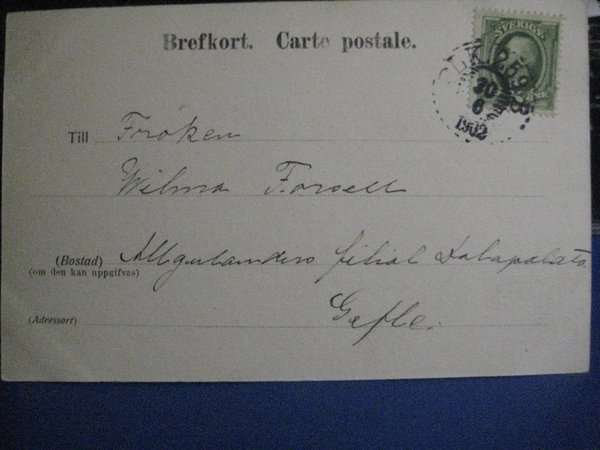 Brefkort. Carte postale.
SVERIGE
259
30
6
1902
Till Fröken
Wilma Forsell
(Bostad) filial
(om den kan uppgifvas)
Gefle.
(Adressort)